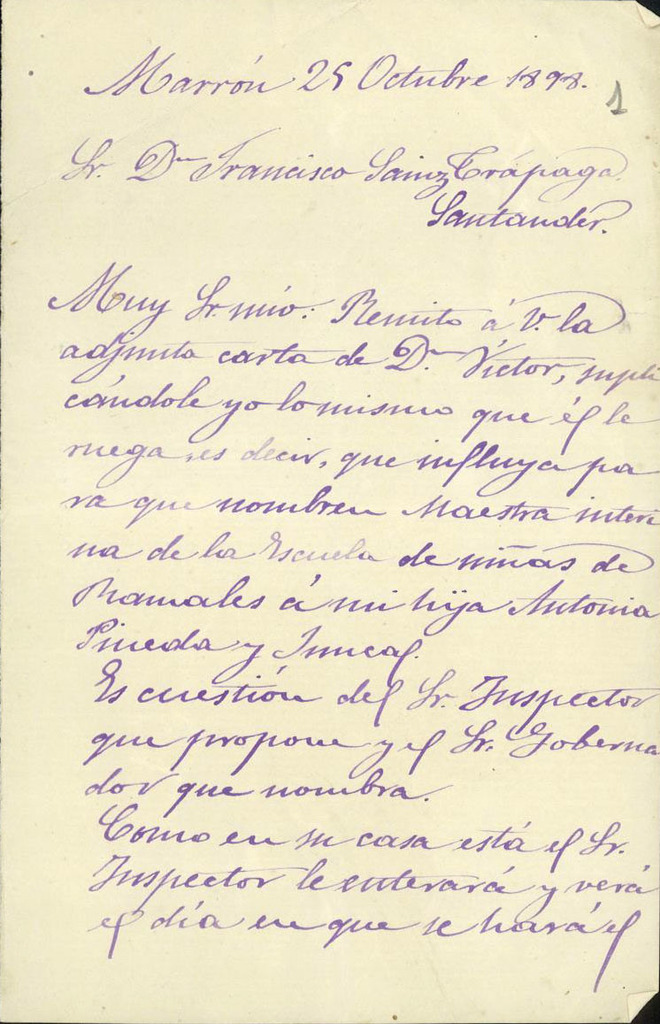 Marrón 25 Octubre 1898.
1
Sr. Dn Francisco Sainz Trápaga.
Santander.
Muy Sr. mío: Remito á V. la
adjunta carta de Dn. Víctor, supli
cándole yo lo mismo que él le
ruega, es decir, que influya pa
ra que nombren Maestra interi
na de la Escuela de niñas de
Ramales á mi hija Antonia
Pineda y
Es cuestión del Sr. Inspector
que propone y el Sr. Goberna
dor que nombra.
Como en su casa está el Sr.
Inspector le enterará y verá
el día en que se hará el